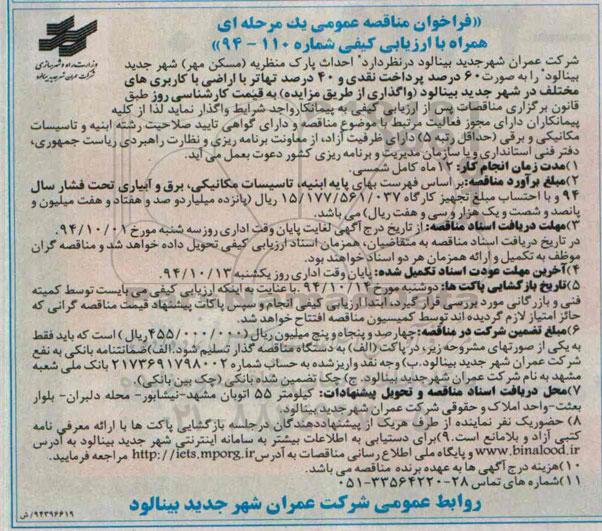 «فراخوان مناقصه عمومی یك مرحله ای
همراه با ارزیابی کیفی شماره ۱۱۰ - ۹۴»
وزارت راه و شهرسازی
شرکت عمران شهر جدید بینالود
شرکت عمران شهرجدید بینالود درنظردارد" احداث پارک منظریه (مسکن مهر) شهر جدید
بینالود" را به صورت ۶۰ درصد پرداخت نقدی و ۴۰ درصد تهاتر با اراضی با کاربری های
مختلف در شهر جدید بینالود (واگذاری از طریق مزایده) به قیمت کارشناسی روز طبق
قانون برگزاری مناقصات پس از ارزیابی کیفی به پیمانکارواجد شرایط واگذار نماید لذا از کلیه
پیمانکاران دارای مجوز فعالیت مرتبط با موضوع مناقصه و دارای گواهی تایید صلاحیت رشته ابنیه و تاسیسات
مکانیکی و برقی (حداقل رتبه ۵) دارای ظرفیت آزاد، از معاونت برنامه ریزی و نظارت راهبردی ریاست جمهوری،
دفتر فنی استانداری و یا سازمان مدیریت و برنامه ریزی کشور دعوت بعمل می آید.
۱)مدت زمان انجام کار: ۱۲ماه کامل شمسی.
۲)مبلغ برآورد مناقصه: بر اساس فهرست بهای پایه ابنیه، تاسیسات مکانیکی، برق و آبیاری تحت فشار سال
۹۴ و با احتساب مبلغ تجهیز کارگاه ۱۵/۱۷۷/۵۶۱/۰۳۷ ریال (پانزده میلیاردو صد و هفتاد و هفت میلیون و
پانصد و شصت و یک هزار و سی و هفت ریال) می باشد.
۳)مهلت دریافت اسناد مناقصه: از تاریخ درج آگهی لغایت پایان وقت اداری روزسه شنبه مورخ ۹۴/۱۰/۰۱.
در تاریخ دریافت اسناد مناقصه به متقاضیان، همزمان اسناد ارزیابی کیفی تحویل داده خواهد شد و مناقصه گران
موظف به تکمیل و ارائه همزمان هر دو اسناد خواهند بود.
۴)آخرین مهلت عودت اسناد تکمیل شده: پایان وقت اداری روز یکشنبه ۹۴/۱۰/۱۳.
۵)تاریخ بازگشایی پاکت ها: دوشنبه مورخ ۹۴/۱۰/۱۴ .با عنایت به اینکه ارزیابی کیفی می بایست توسط کمیته
فنی و بازرگانی مورد بررسی قرار گیرد، ابتدا ارزیابی کیفی انجام و سپس پاکات پیشنهاد قیمت مناقصه گرانی که
حائز امتیاز لازم گردیده اند توسط کمیسیون مناقصه افتتاح خواهد شد.
۶)مبلغ تضمین شرکت در مناقصه: چهارصد و پنجاه و پنج میلیون ریال (۴۵۵/۰۰۰/۰۰۰ریال ) است که باید فقط
به یکی از صورتهای مشروحه زیر، در پاکت (الف) به دستگاه مناقصه گذار تسلیم شود.الف)ضمانتنامه بانکی به نفع
شرکت عمران شهر جدید بینالود.ب) وجه نقد واریزشده به حساب شماره ۲۱۷۳۶۹۱۷۹۸۰۰۲ بانک ملی شعبه
مشهد به نام شرکت عمران شهر جدید بینالود. ج) چک تضمین شده بانکی (چک بین بانکی).
۷)محل دریافت اسناد مناقصه و تحویل پیشنهادات: کیلومتر ۵۵ اتوبان مشهد-نیشابور- محله دلبران- بلوار
بعثت-واحد املاک و حقوقی شرکت عمران شهرجدید بینالود.
۸) حضوریک نفر نماینده از طرف هریک از پیشنهاددهندگان درجلسه بازگشایی پاکت ها با ارائه معرفی نامه
کتبی آزاد و بلامانع است.۹)برای دستیابی به اطلاعات بیشتر به سامانه اینترنتی شهر جدید بینالود به آدرس
www.binalood.ir و پایگاه ملی اطلاع رسانی مناقصات به آدرس http://iets.mporg.ir مراجعه فرمایید.
۱۰)هزینه درج آگهی ها به عهده برنده مناقصه می باشد.
۱۱)شماره های تماس ۲۸-۳۳۵۶۴۲۲۰-۰۵۱
روابط عمومی شرکت عمران شهر جدید بینالود
۹۴۳۹۶۶۱۹/ش